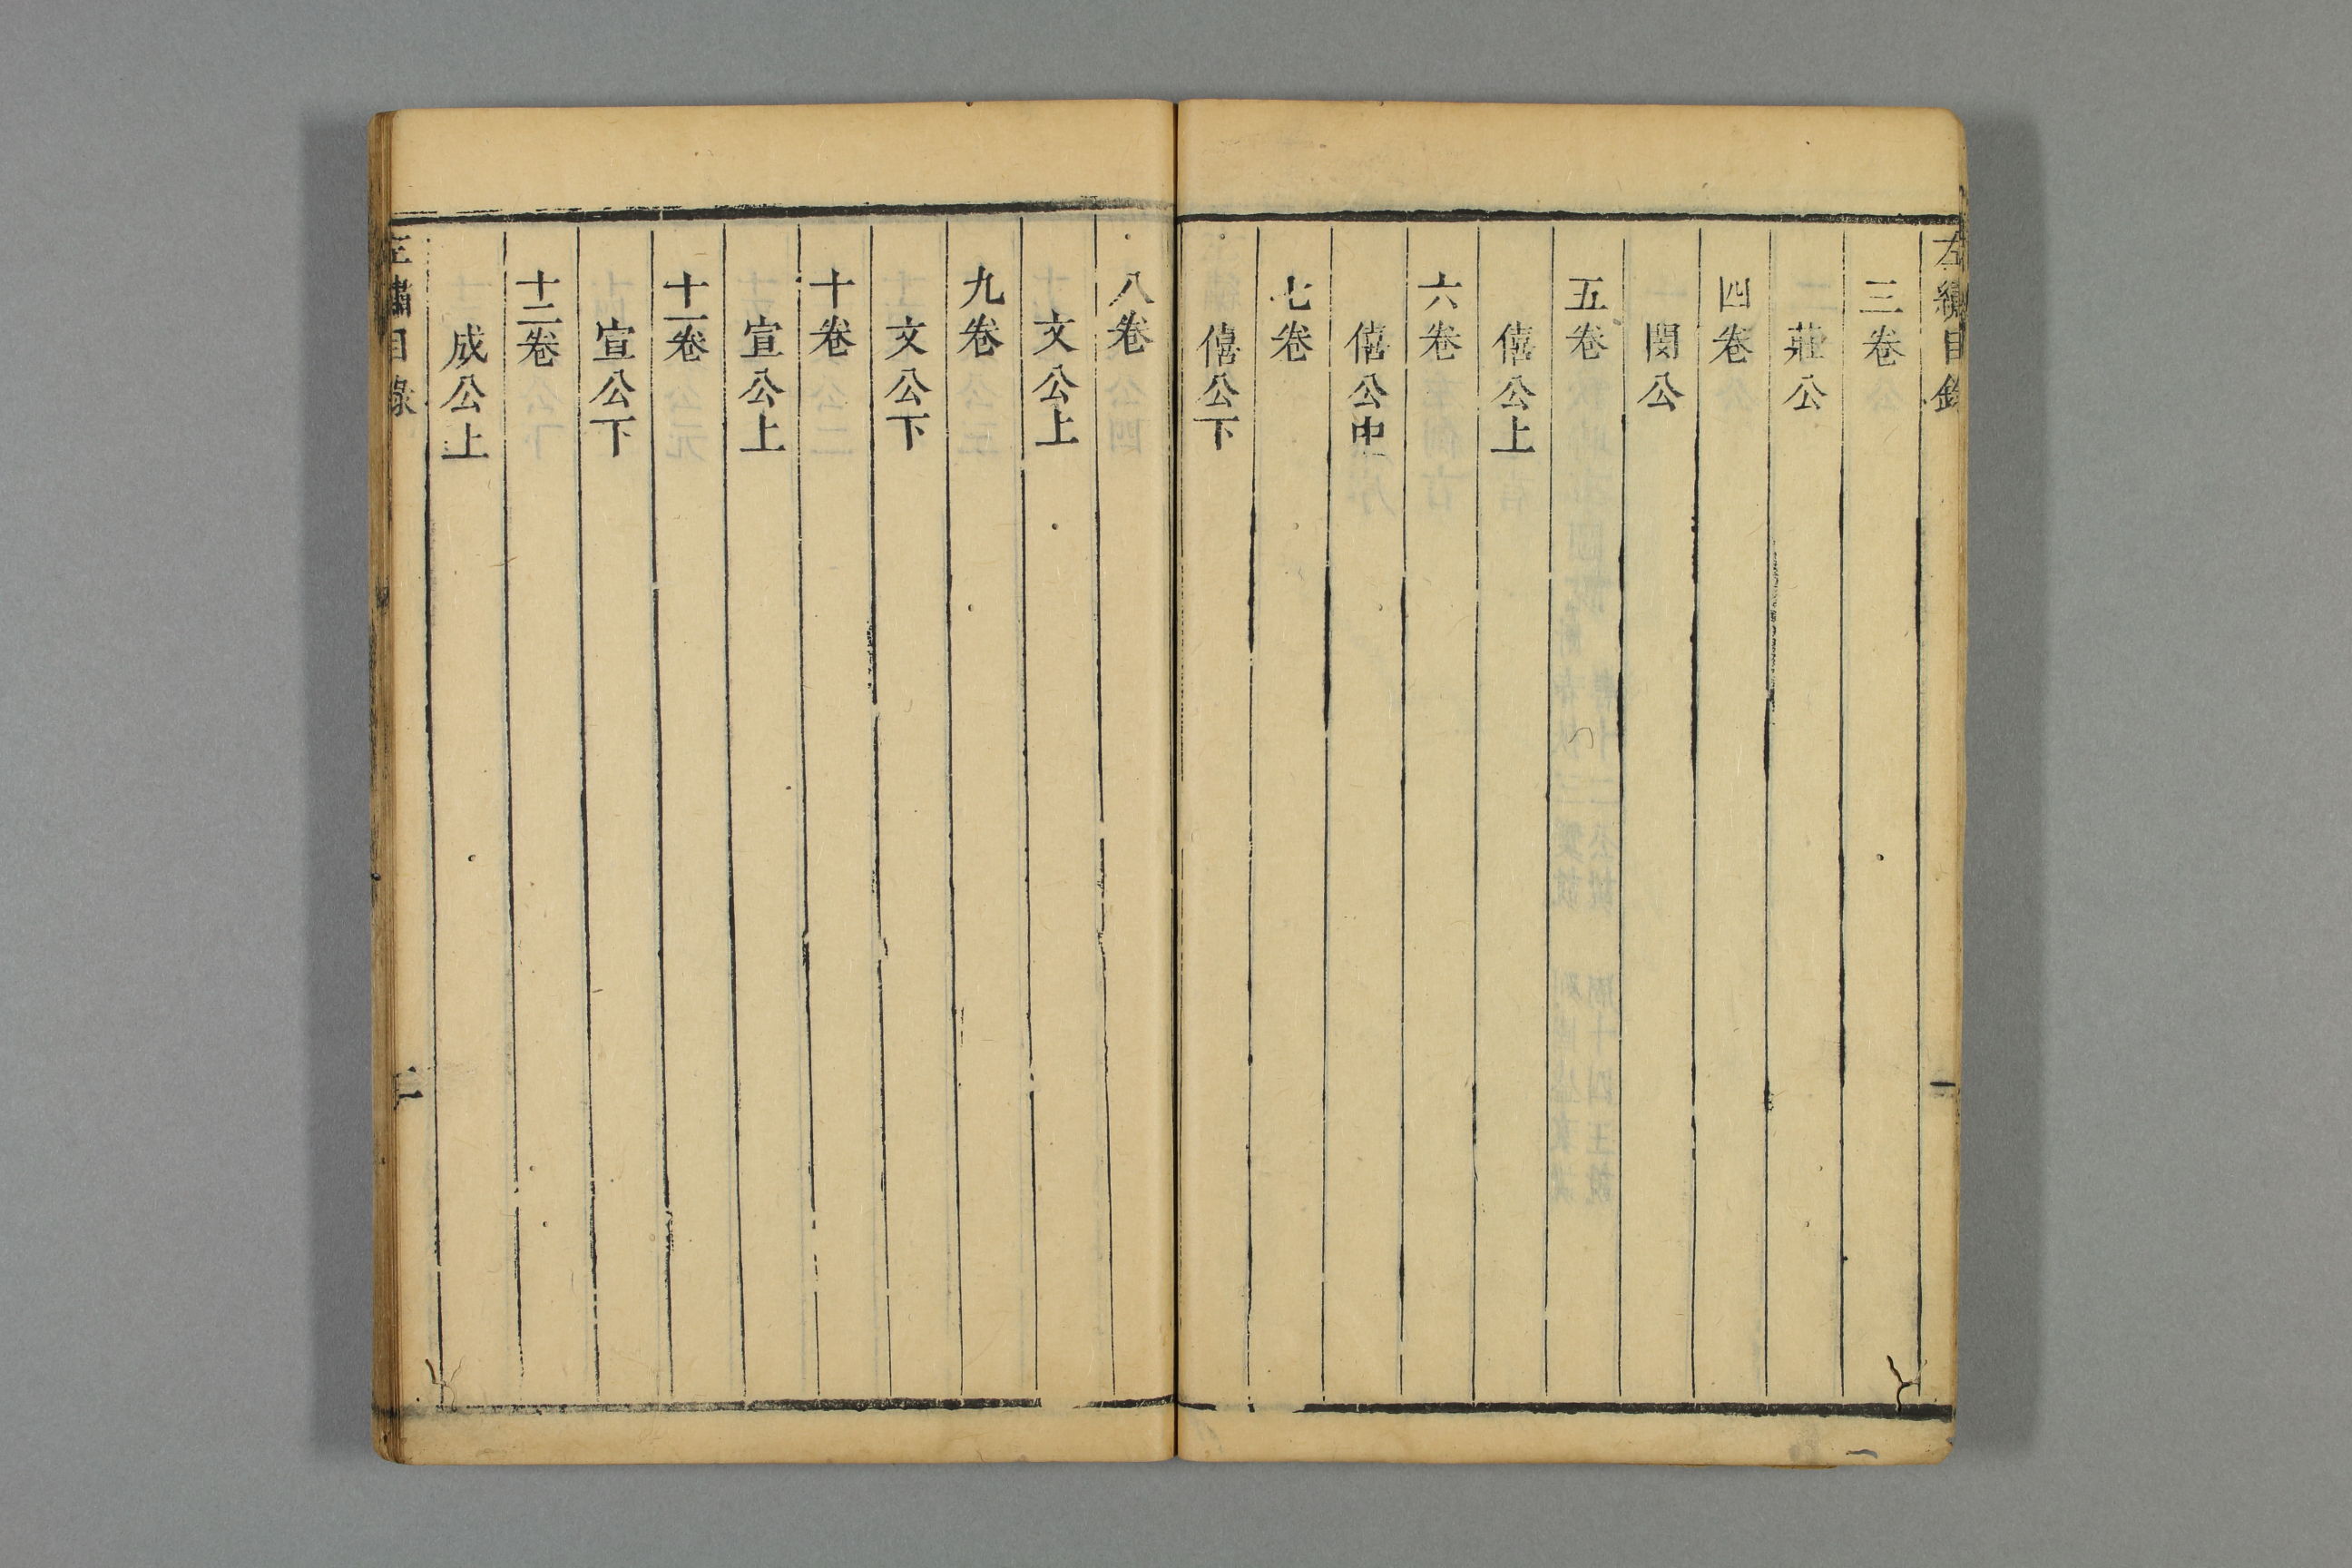 左繡目錄
一
三卷
莊公
四卷
閔公
五卷
僖公上
六卷
僖公中
七卷
僖公下
八卷
文公上
九卷
文公下
十卷
宣公上
十一卷
宣公下
十二卷
成公上
左繡目錄
二